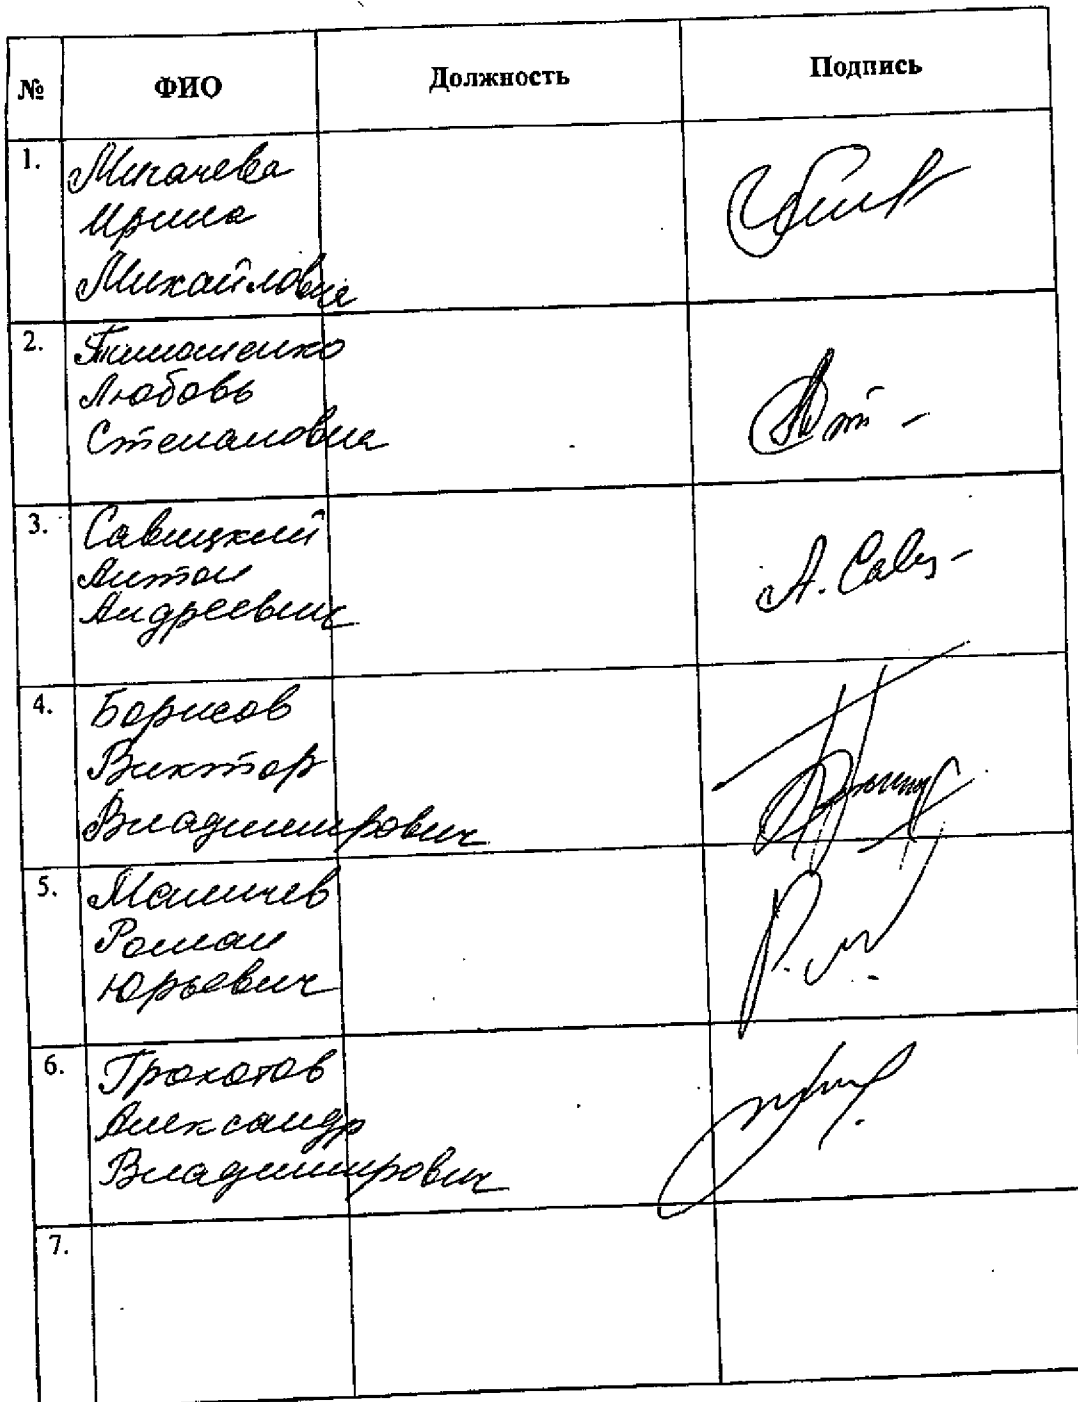 № ФИО Должность Подпись
1. Мигачева
Ирина
Михайловна
2. Тимошенко
Любовь
Степановна
3. Савицкий
Антон
Андреевич
А. Савц
4. Борисов
Виктор
Владимирович
5. Роман
Юрьевич
6. Грохотов
Александр
Владимирович
7.